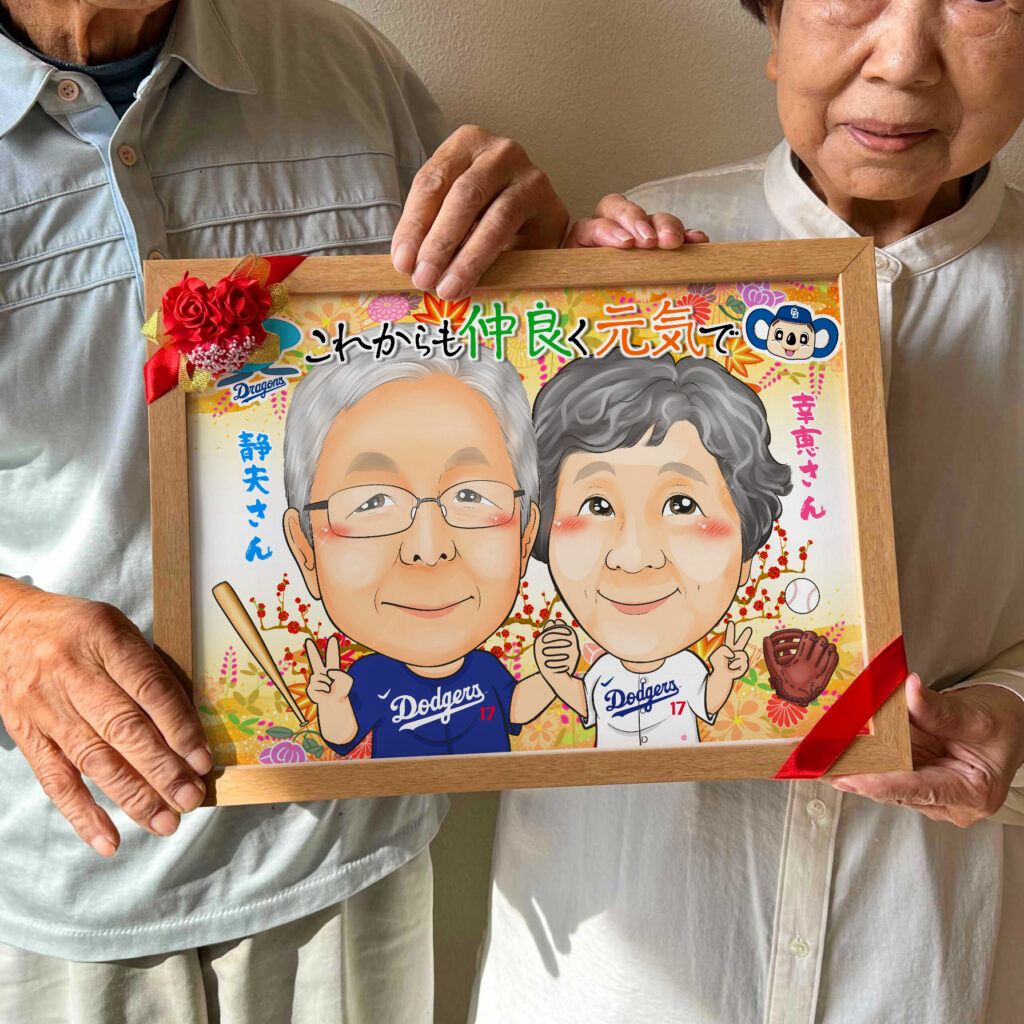 これからも仲良く元気で
Dragons
CD
静夫さん
幸恵さん
Dodgers
17
Dodgers
17